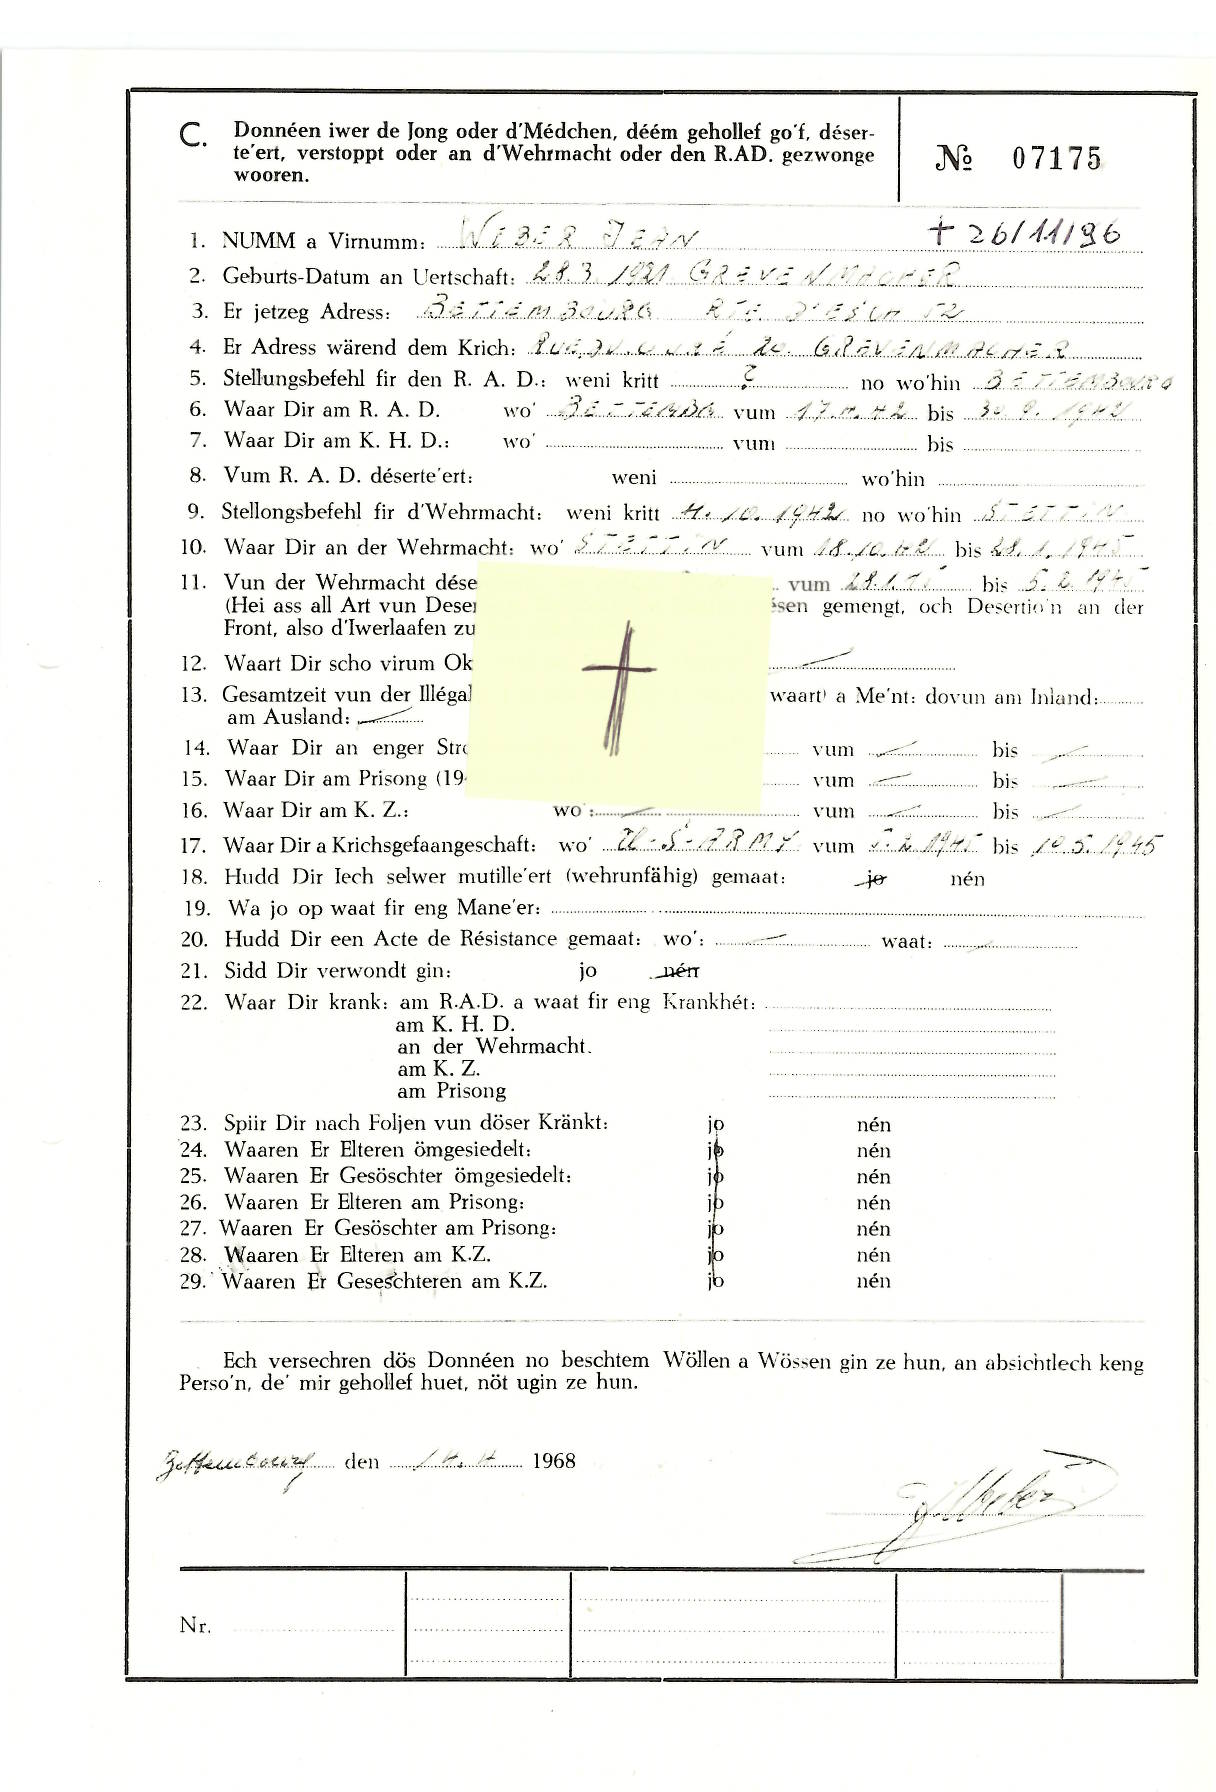 C. Donnéen iwer de Jong oder d'Médchen, déém gehollef go'f, déser-
te'ert, verstoppt oder an d'Wehrmacht oder den R.AD. gezwonge
wooren.
№ 07175
1. NUMM a Virnumm: WEBER JEAN + 26/11/96
2. Geburts-Datum an Uertschaft: 28.3.1921 GREVENMACHER
3. Er jetzeg Adress: BETTEMBOURG RTE. D'ESCH 52
4. Er Adress wärend dem Krich: RUE DU CURÉ 20. GREVENMACHER
5. Stellungsbefehl fir den R. A. D.: weni kritt ? no wo'hin BETTEMBOURG
6. Waar Dir am R. A. D. wo' BETTEMBG vum 17.4.42 bis 30.9.1942
7. Waar Dir am K. H. D.: wo' vum bis
8. Vum R. A. D. déserte'ert: weni wo'hin
9. Stellongsbefehl fir d'Wehrmacht: weni kritt 4.10.1942 no wo'hin STETTIN
10. Waar Dir an der Wehrmacht: wo' STETTIN vum 18.10.42 bis 28.1.1945
11. Vun der Wehrmacht dése vum 28.1.45 bis 5.2.1945
(Hei ass all Art vun Deser ésen gemengt, och Desertio'n an der
Front, also d'Iwerlaafen zu
12. Waart Dir scho virum Ok
13. Gesamtzeit vun der Illégal waart) a Me'nt: dovun am Inland:
am Ausland:
14. Waar Dir an enger Stro vum bis
15. Waar Dir am Prisong (194 vum bis
16. Waar Dir am K. Z.: wo': vum bis
17. Waar Dir a Krichsgefaangeschaft: wo' U-S-ARMY vum 5.2.1945 bis 10.5.1945
18. Hudd Dir Iech selwer mutille'ert (wehrunfähig) gemaat: jo nén
19. Wa jo op waat fir eng Mane'er:
20. Hudd Dir een Acte de Résistance gemaat: wo': waat:
21. Sidd Dir verwondt gin: jo nén
22. Waar Dir krank: am R.A.D. a waat fir eng Krankhét:
am K. H. D.
an der Wehrmacht.
am K. Z.
am Prisong
23. Spiir Dir nach Foljen vun döser Kränkt: jo nén
24. Waaren Er Elteren ömgesiedelt: jo nén
25. Waaren Er Gesöschter ömgesiedelt: jo nén
26. Waaren Er Elteren am Prisong: jo nén
27. Waaren Er Gesöschter am Prisong: jo nén
28. Waaren Er Elteren am K.Z. jo nén
29. Waaren Er Geseschteren am K.Z. jo nén
Ech versechren dös Donnéen no beschtem Wöllen a Wössen gin ze hun, an absichtlech keng
Perso'n, de' mir gehollef huet, nöt ugin ze hun.
Bettembourg den 14.4. 1968
J. Weber
Nr.